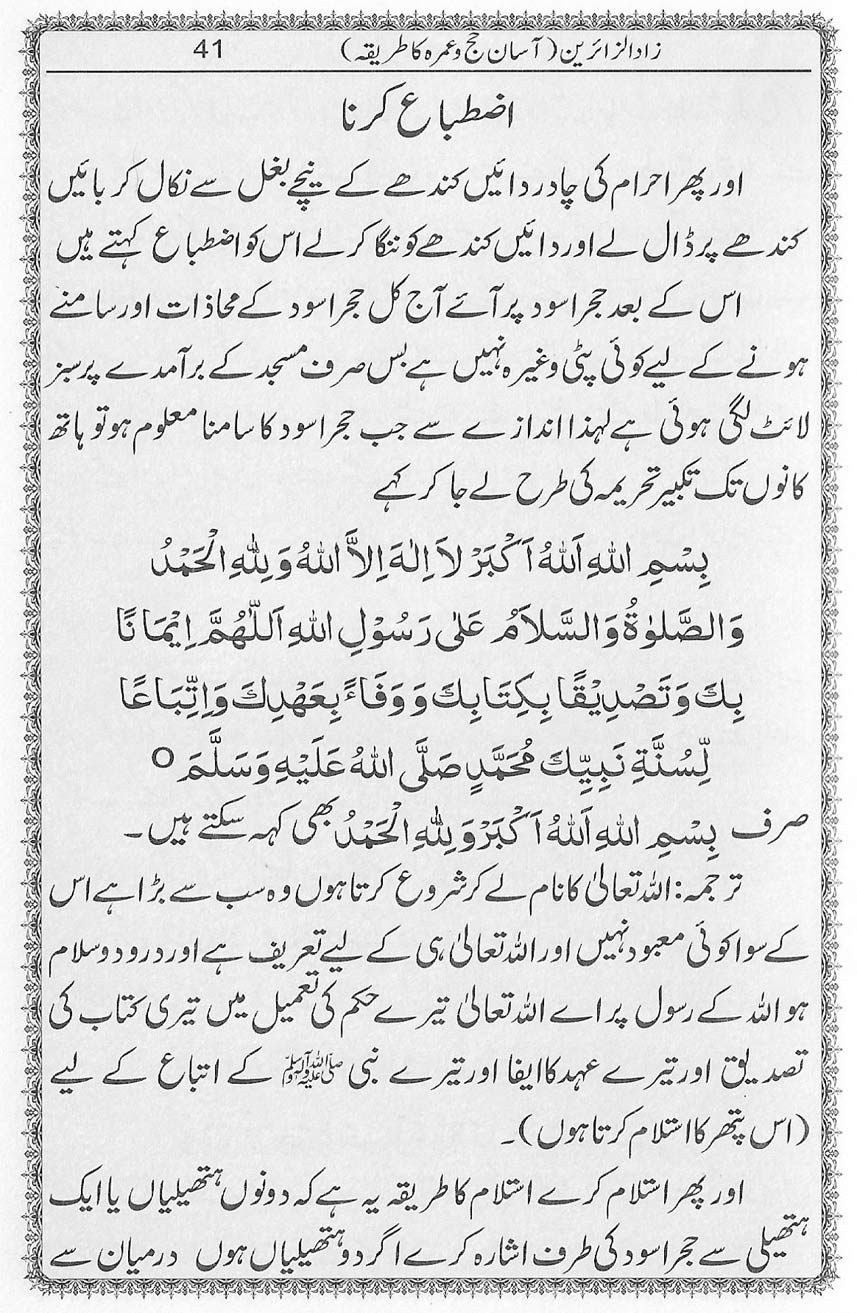 زاد الزائرین (آسان حج و عمرہ کا طریقہ) 41
اضطباع کرنا
اور پھر احرام کی چادر دائیں کندھے کے نیچے بغل سے نکال کر بائیں
کندھے پر ڈال لے اور دائیں کندھے کو ننگا کر لے اس کو اضطباع کہتے ہیں
اس کے بعد حجر اسود پر آئے آج کل حجر اسود کے محاذات اور سامنے
ہونے کے لیے کوئی پٹی وغیرہ نہیں ہے بس صرف مسجد کے برآمدے پر سبز
لائٹ لگی ہوئی ہے لہذا اندازے سے جب حجر اسود کا سامنا معلوم ہو تو ہاتھ
کانوں تک تکبیر تحریمہ کی طرح لے جا کر کہے
بِسْمِ اللهِ اَللهُ اَكْبَرْ لاَ اِلٰهَ اِلاَّ اللهُ وَلِلّٰهِ الْحَمْدُ
وَالصَّلٰوةُ وَالسَّلاَمُ عَلٰى رَسُوْلِ اللهِ اَللّٰهُمَّ اِيْمَانًا
بِكَ وَتَصْدِيْقًا بِكِتَابِكَ وَوَفَاءً بِعَهْدِكَ وَاِتِّبَاعًا
لِّسُنَّةِ نَبِيِّكَ مُحَمَّدٍ صَلَّى اللهُ عَلَيْهِ وَسَلَّمَ ○
صرف بِسْمِ اللهِ اَللهُ اَكْبَرْ وَلِلّٰهِ الْحَمْدُ بھی کہہ سکتے ہیں۔
ترجمہ: اللہ تعالیٰ کا نام لے کر شروع کرتا ہوں وہ سب سے بڑا ہے اس
کے سوا کوئی معبود نہیں اور اللہ تعالیٰ ہی کے لیے تعریف ہے اور درود و سلام
ہو اللہ کے رسول پر اے اللہ تعالیٰ تیرے حکم کی تعمیل میں تیری کتاب کی
تصدیق اور تیرے عہد کا ایفا اور تیرے نبی ﷺ کے اتباع کے لیے
(اس پتھر کا استلام کرتا ہوں)۔
اور پھر استلام کرے استلام کا طریقہ یہ ہے کہ دونوں ہتھیلیاں یا ایک
ہتھیلی سے حجر اسود کی طرف اشارہ کرے اگر دو ہتھیلیاں ہوں درمیان سے